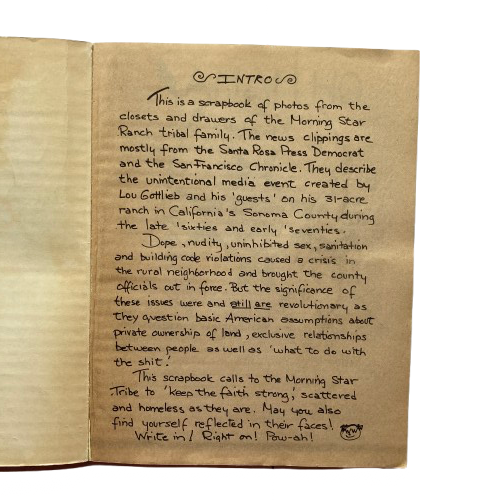 INTRO
This is a scrapbook of photos from the
closets and drawers of the Morning Star
Ranch tribal family. The news clippings are
mostly from the Santa Rosa Press Democrat
and the San Francisco Chronicle. They describe
the unintentional media event created by
Lou Gottlieb and his 'guests' on his 31-acre
ranch in California's Sonoma County during
the late 'sixties and early 'seventies.
Dope, nudity, uninhibited sex, sanitation
and building code violations caused a crisis in
the rural neighborhood and brought the county
officials out in force. But the significance of
these issues were and still are revolutionary as
they question basic American assumptions about
private ownership of land, exclusive relationships
between people as well as 'what to do with
the shit.'
This scrapbook calls to the Morning Star
Tribe to 'keep the faith strong,' scattered
and homeless as they are. May you also
find yourself reflected in their faces!
Write in! Right on! Pow-ah!